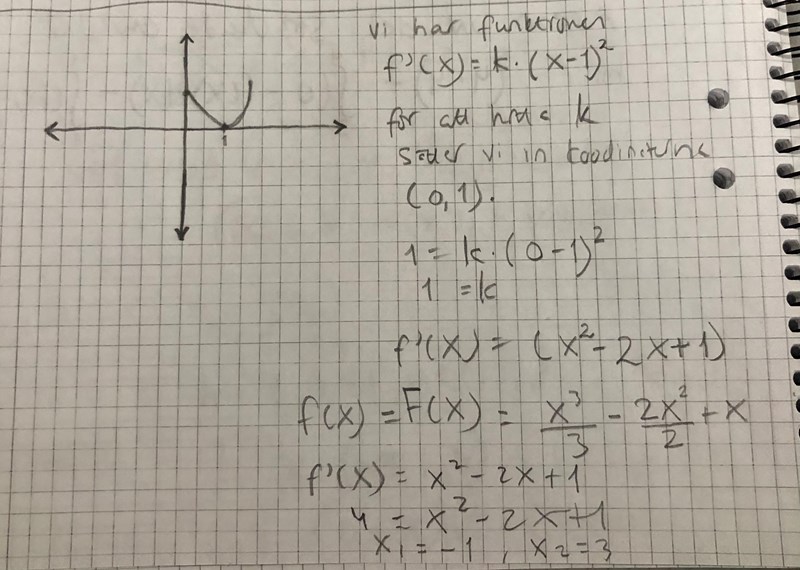 1
vi har funktionen
f'(x) = k · (x-1)²
för att hitta k
sätter vi in koordinaterna
(0,1).
1 = k · (0-1)²
1 = k
f'(x) = (x² - 2x + 1)
f(x) = F(x) = x³/3 - 2x²/2 + x
f'(x) = x² - 2x + 1
4 = x² - 2x + 1
x₁ = -1, x₂ = 3